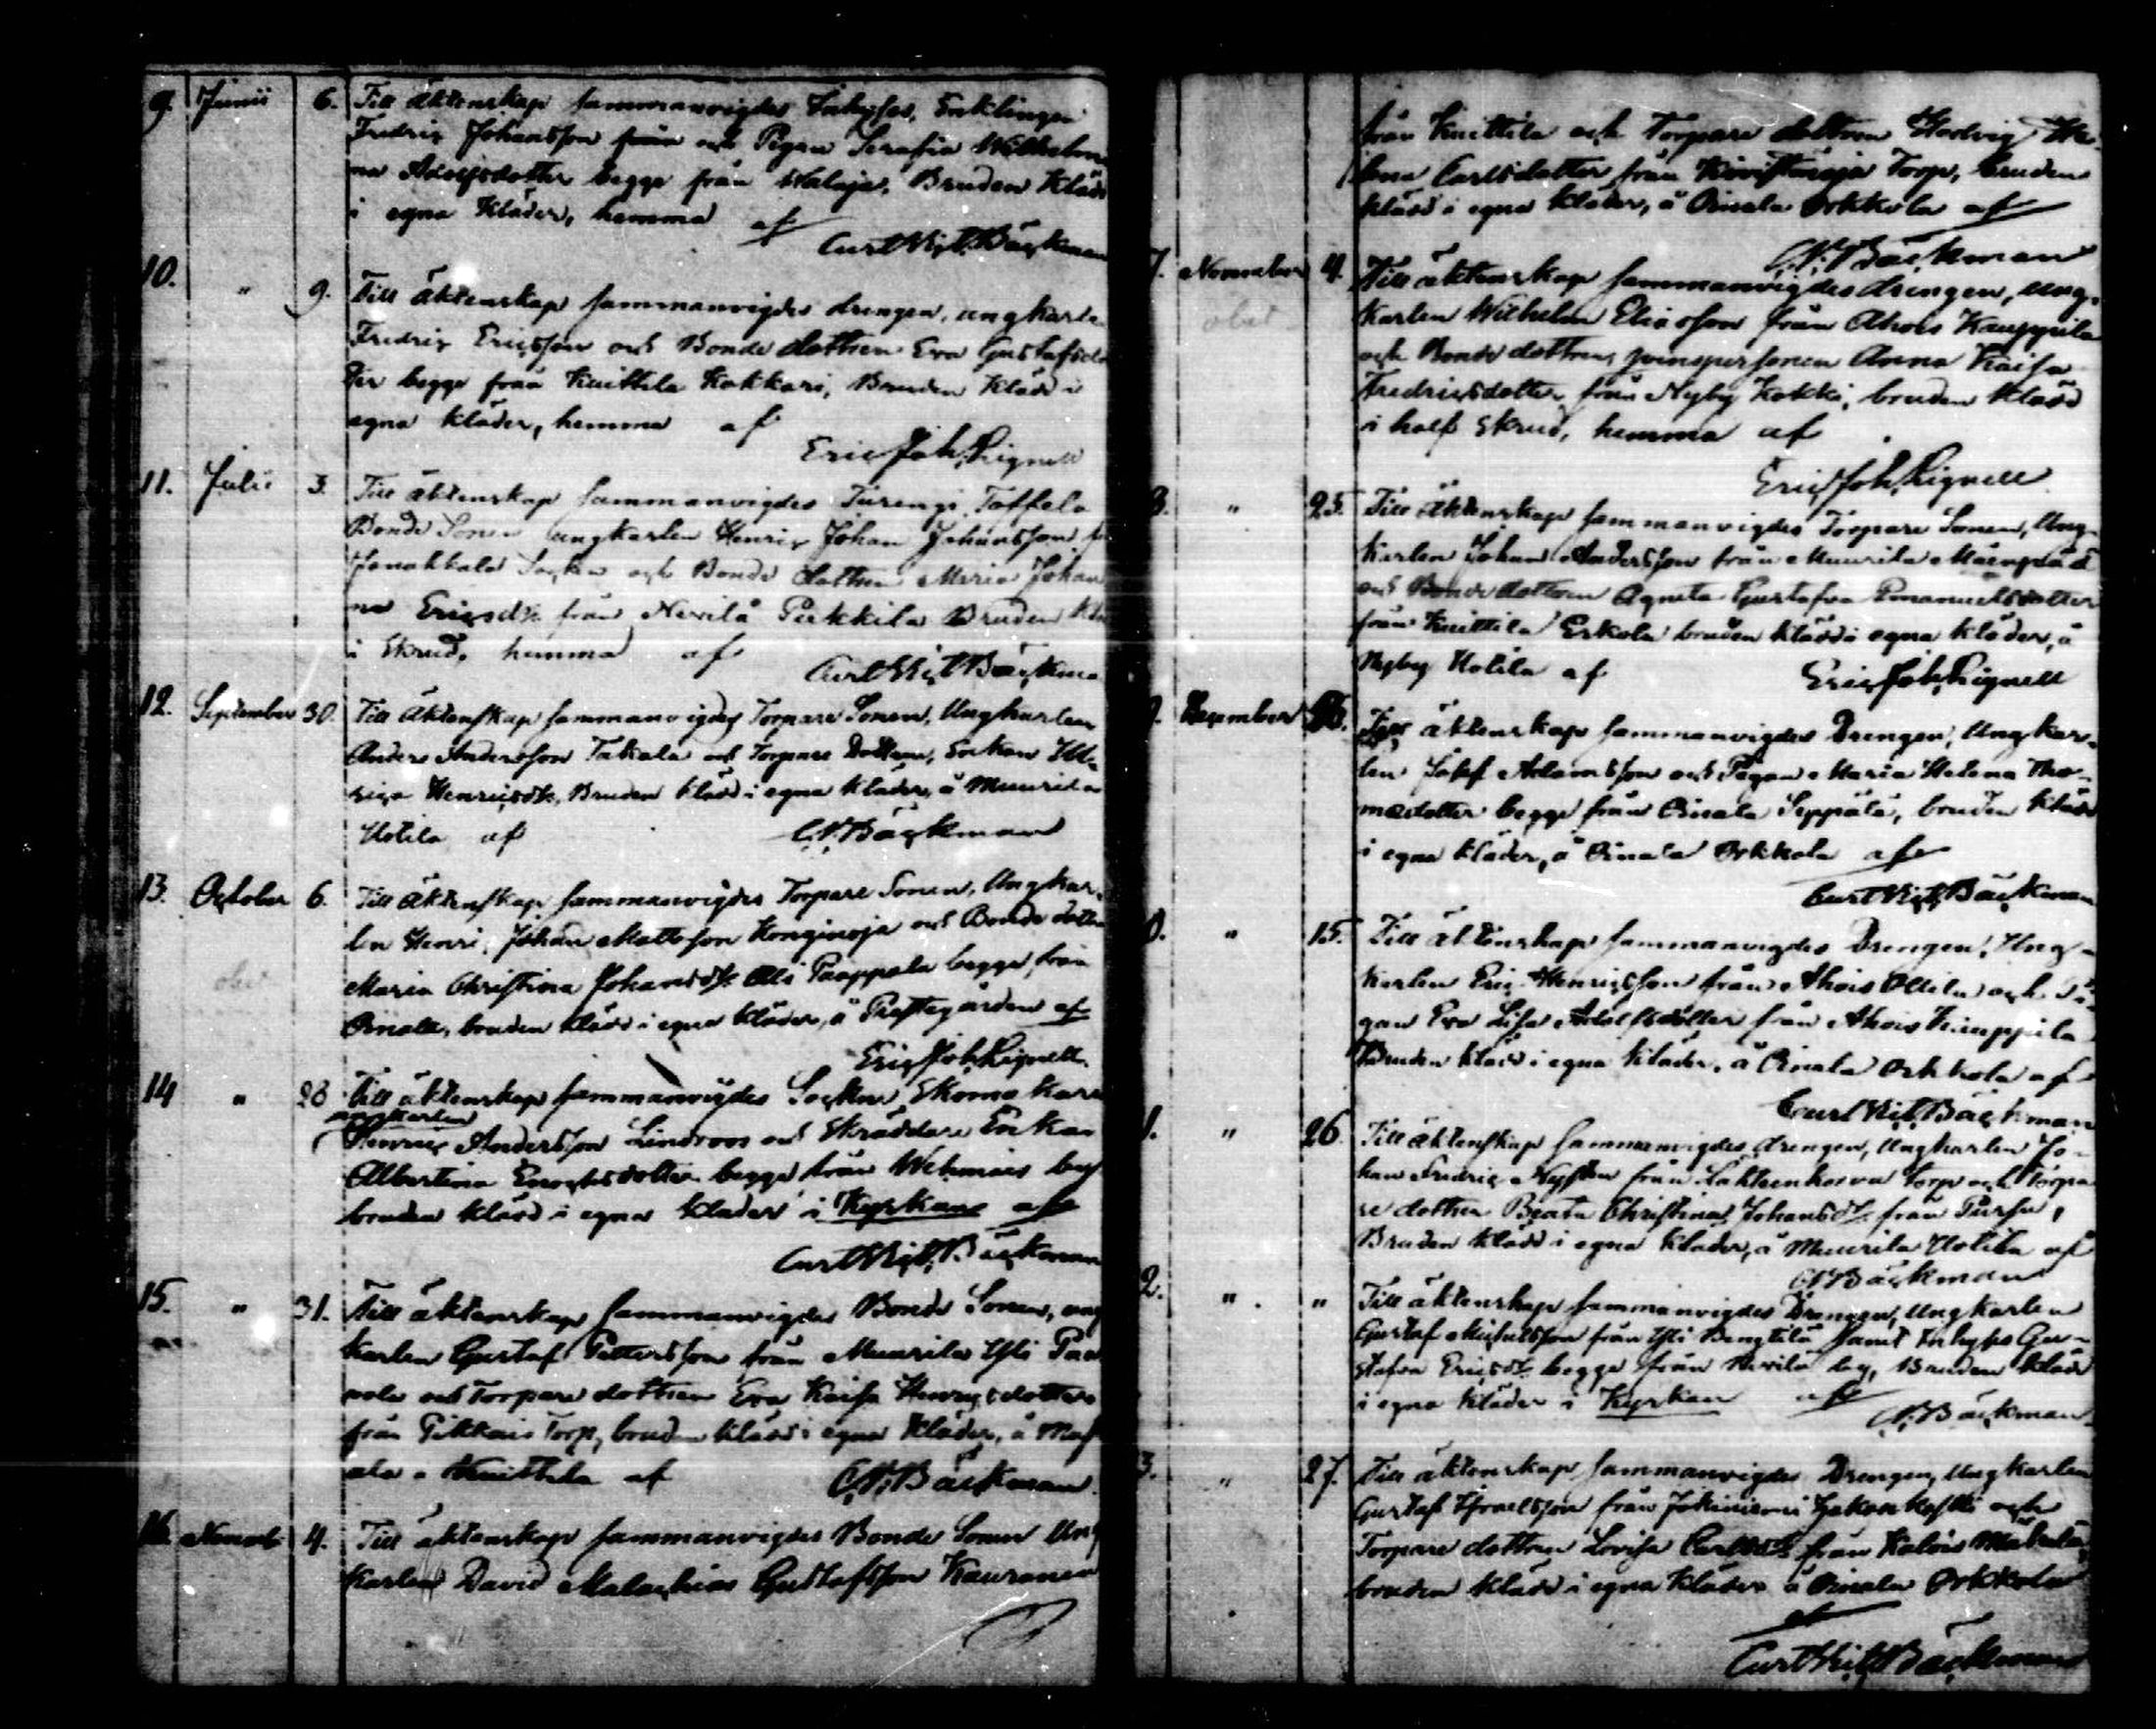 9. Junii 6. Till äktenskap sammanvigdes Inhyses, Enklingen
Fredric Johansson från och Pigan Serafia Wilhelmi
na Adolfsdotter begge från Alaje, Bruden Klädd
i egna Kläder, hemma af
Curt Vict. Bäckman
10. " 9. Till äktenskap sammanvigdes drengen, ungkarlen
Fredric Ericsson och Bonde dottren Eva Gustafsdo
ter begge från Knittila Kokkari, Bruden Klädd i
egna kläder, hemma af
Eric Joh. Lignell
11. Julii 3. Till äktenskap sammanvigdes Turengi Toffola
Bonde Sonen ungkarlen Henric Johan Johansson
Janakkala Socken och Bonde dottren Maria Johan
na Ericsdr. från Nevilä Perkkila Bruden Klä
i Skrud, hemma af
Curt Vict Bäckma
12. September 30. Till äktenskap sammanvigdes Torpare Sonen, Ungkarlen
Anders Andersson Takala och Torpare Dottren, Enkan Ul
rica Henricsdr, Bruden klädd i egna kläder, å Muurila
Uotila af C.V. Bäckman
13. October 6. Till äktenskap sammanvigdes Torpare Sonen, Ungkar
len Henric Johan Mattsson Konginoja och Bonde dottren
obs
Maria Christina Johansdr. Ali Paappala begge från
Oinala, bruden klädd i egna kläder, å Prestegården af
Eric Joh. Lignell
14 " 28 Till äktenskap sammanvigdes Socken Skomakare
ungkarlen
Henric Andersson Lindroos och Skräddare Enkan
Albertina Enochsdotter begge från Wehmais by
bruden klädd i egna kläder i Kyrkan af
Curt Vict. Bäckman
15. " 31. Till äktenskap sammanvigdes Bonde Sonen, ung
karlen Gustaf Pettersson från Muurila Yli Paa
vola och Torpare dottren Eva Kaisa Henricsdotter
från Pikkais Torp, bruden klädd i egna Kläder, å
ala Knittila af C.V. Bäckman
16. Novemb 4. Till äktenskap sammanvigdes Bonde Sonen Ung
karlen David Malachias Gustafsson Kauranen
från Knittila och Torpare dottren Hedvig He
lena Carlsdotter från Torp, bruden
klädd i egna kläder, å Oinala Orkkola af
C.V. Bäckman
7. November 4. Till äktenskap sammanvigdes drengen, ung
obs
karlen Wilhelm Eliasson från Ahois Kauppila
och Bonde dottren, qvinspersonen Anna Kaisa
Fredricsdotter från Nyby Kokki, bruden klädd
i half Skrud, hemma af
Eric Joh. Lignell
8. " 25. Till äktenskap sammanvigdes Torpare Sonen, Ung
karlen Johan Andersson från Muurila Mäenpää
och Bonde dottren Agneta Gustafva Emanuelsdotter
från Knittila Erkola bruden klädd i egna kläder, å
Nyby Uotila af Eric Joh. Lignell
9. December Till äktenskap sammanvigdes Drengen, Ungkar
len Josef Adamsson och Pigan Maria Helena Tho
masdotter begge från Oinala Seppälä, bruden klädd
i egna kläder, å Oinala Orkkola af
Curt Vict. Bäckman
0. " 15. Till äktenskap sammanvigdes Drengen, Ung
karlen Eric Henricsson från Ahois Ollila och Pi
gan Eva Lisa Adolfsdotter från Ahois Kauppila
Bruden klädd i egna kläder, å Oinala Orkkola af
Curt Vict. Bäckman
1. " 26. Till äktenskap sammanvigdes drengen, Ungkarlen Jo
han Fredric Nysten från Lahtenkorva Torp och Torpa
re dottren Beata Christina Johansdr. från Pursu,
Bruden klädd i egna kläder, å Muurila Uotila af
C.V. Bäckman
2. " " Till äktenskap sammanvigdes Drengen, Ungkarlen
Gustaf Michelsson från Yli Bengtilä samt Inhyses Gu
stafva Ericsdr. begge från Nevilä by, Bruden klädd
i egna kläder i Kyrkan af
C.V. Bäckman
3. " 27. Till äktenskap sammanvigdes Drengen, Ungkarlen
Gustaf Israelsson från Jokiniemi och
Torpare dottren Lovisa Carlsdr från Kalois Mäkelä,
bruden klädd i egna kläder å Oinala Orkkola
af
Curt Vict Bäckman